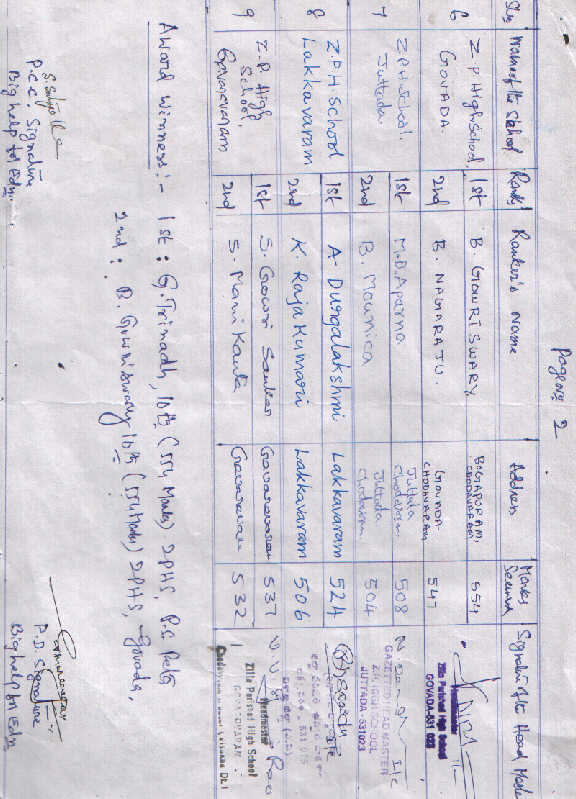 Page no 2
S.No Name of the School Rank Ranker's Name Address Marks Secured Signature of the Head Master
6 Z.P. High School, GOVADA. 1st B. GOURISWARY BOGAPURAM, CHODAVARAM. 554
2nd B. NAGARAJU. GOVADA CHODAVARAM 547
Headmaster
Zilla Parishad High School
GOVADA-531 023
7 Z.P.H. School. Juttada. 1st M.D. Aparna Juttada Chodavaram 508
2nd B. Mounica Juttada Chodavaram 504
GAZETTED HEAD MASTER
Z.P. HIGH SCHOOL
JUTTADA-531023
8 Z.P.H. School Lakkavaram 1st A. Durgalakshmi Lakkavaram 524
2nd K. Raja Kumari Lakkavaram 506
9 Z.P. High School Gavaravaram 1st S. Gowri Sankar Gavaravaram 537
2nd S. Mani Kanta Gavaravaram 532
Headmaster
Zilla Parishad High School
GAVARAVARAM
Award winners :- 1st : G. Trinadh, 10th (554 Marks) ZPHS, P.S. Peta
2nd : B. Gowriswary 10th (554 Marks) ZPHS, Govada,
P.C. Signature
Big help for Edn.
P.D. Signature
Big help for Edn